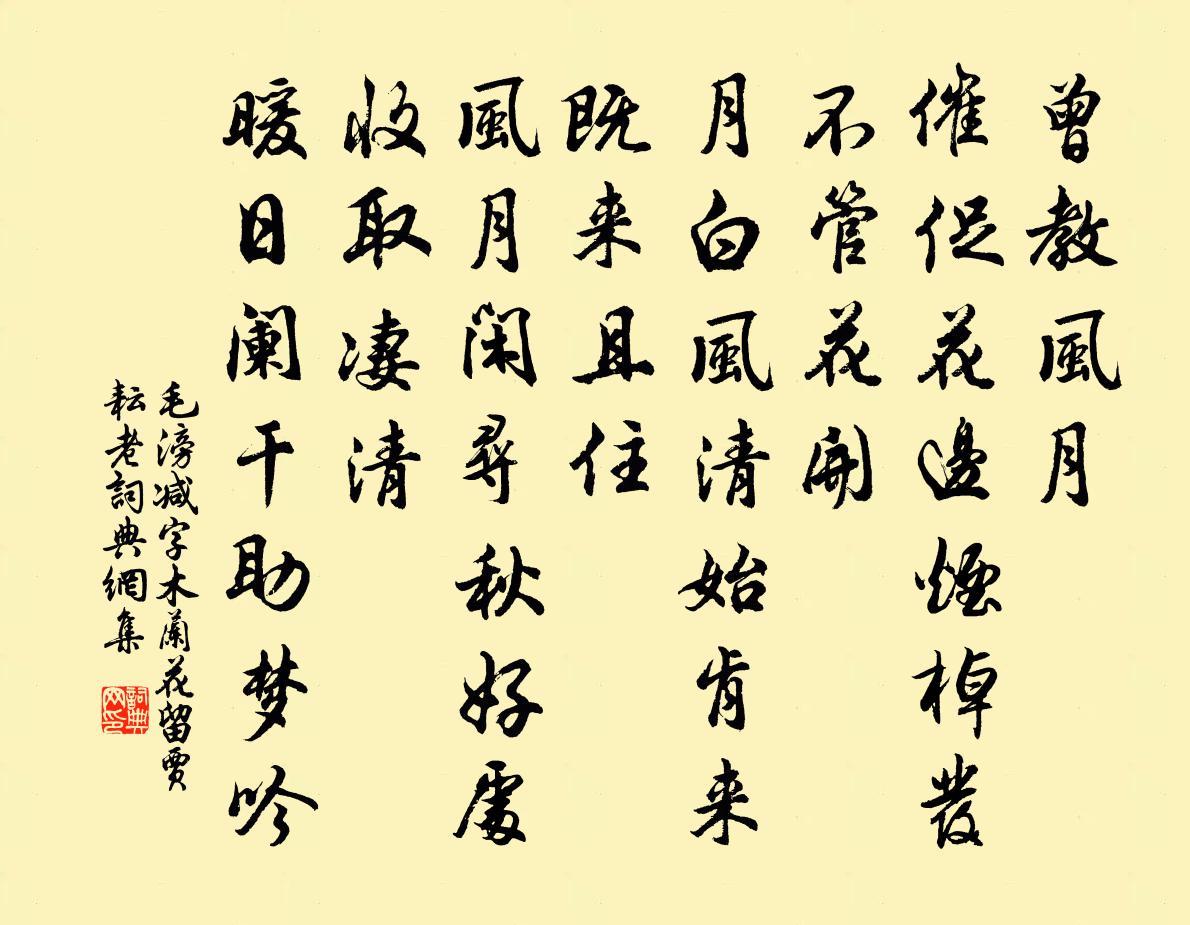 曾教風月
催促花邊煙棹發
不管花開
月白風清始肯来
既来且住
風月闲尋秋好處
收取凄清
暖日阑干助梦吟
毛滂减字木蘭花留賈
耘老詞典網集
詞典
网印